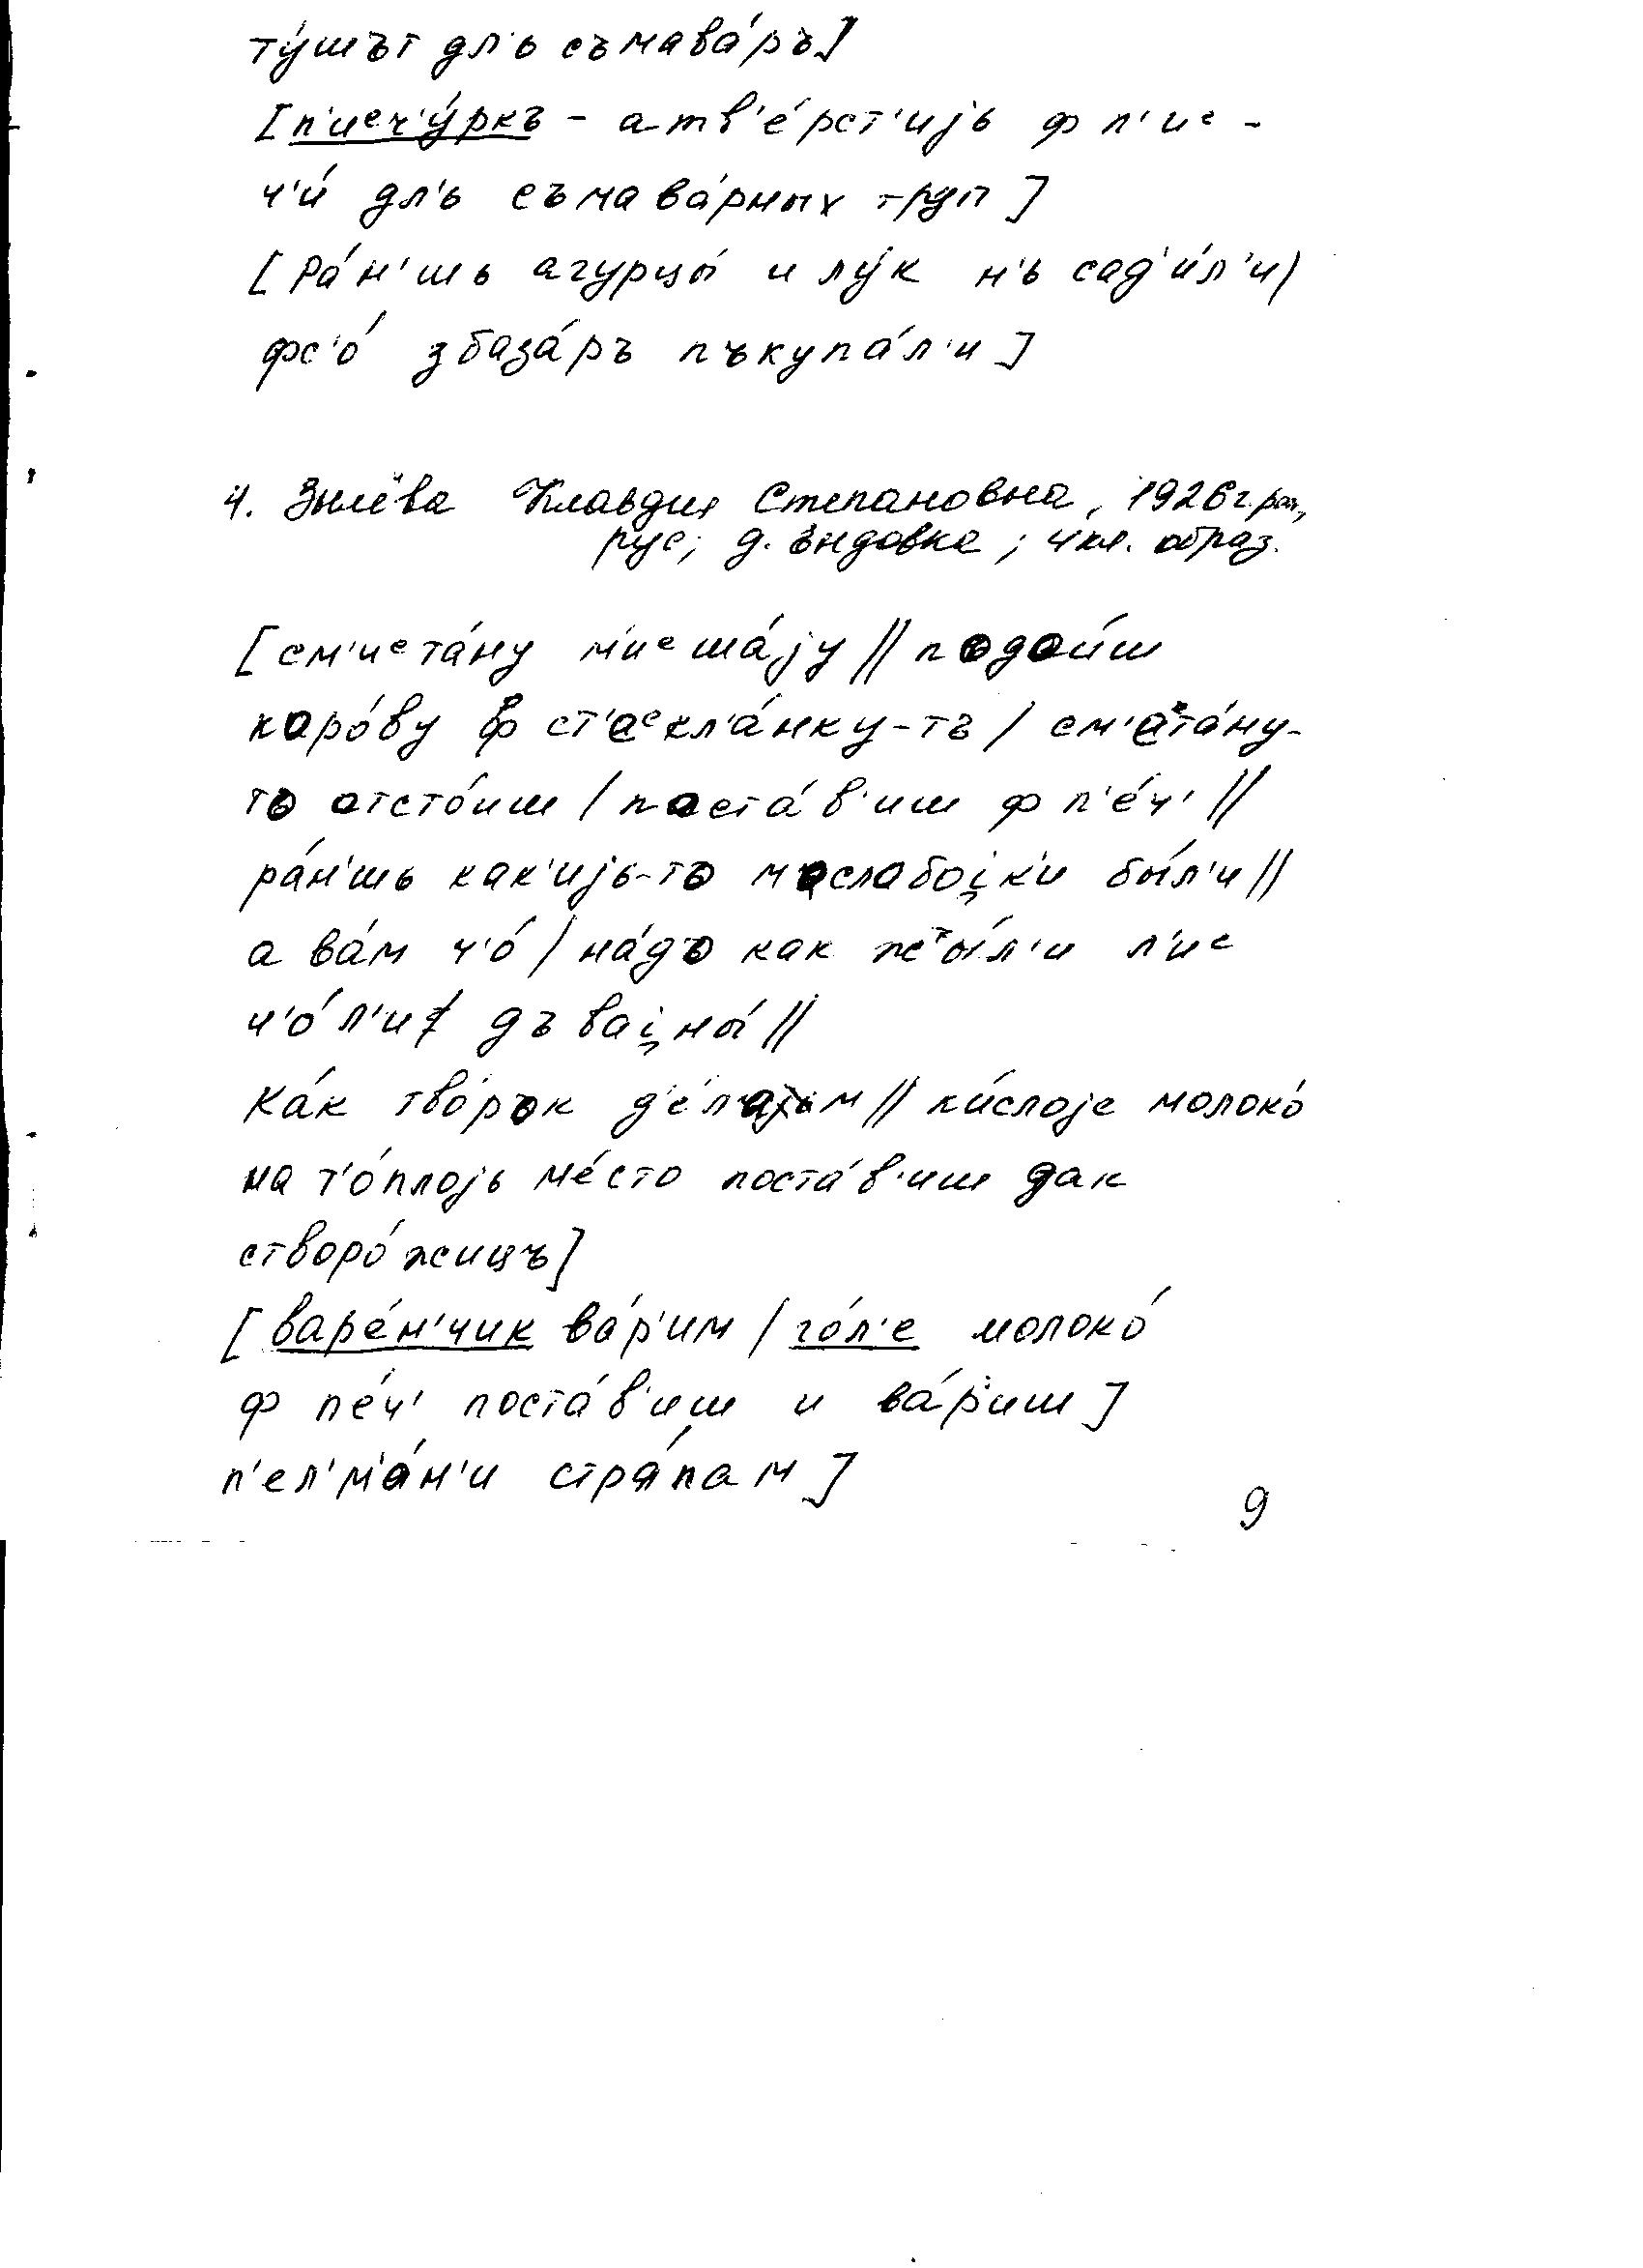 ту́шът дл'ь съмава́ръ]
[п'иеч'у́ркъ – атв'е́рст'иjь ф п'ие-
ч'и́ дл'ь съмава́рных труп]
[ра́н'шь агурцы́ и лу́к н'ь сад'и́л'и/
фс'о́ збаза́ръ пъкупа́л'и]
4. Зылёва Клавдия Степановна, 1926 г. рож.,
рус; д. Ендовка; 4 кл. образ.
[см'иета́ну м'иеша́jу // подои́ш
каро́ву ф ст'аекл'а́нку-тъ / см'ета́ну-
то отсто́иш / поста́в'иш ф п'е́ч' //
ра́н'шь как'иjь-то маслабоįк'и бы́л'и //
а ва́м ч'о́ / на́до как жы́л'и л'ие
ч'о́ л'и дъ ваįны́ //
Ка́к тво́рок д'е́лам // ки́слоjе молоко́
на т'о́плоjь ме́сто поста́в'иш дак
створо́жицъ]
[варе́н'чик ва́р'им / го́л'е молоко́
ф пе́ч' поста́в'иш и ва́р'иш]
п'ел'м'а́н'и стря́пам]
9